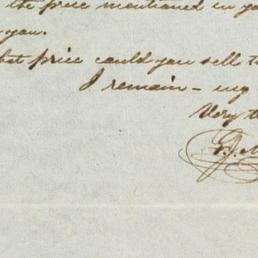 the price mentioned in
you.
price could you sell
I remain - my
Very